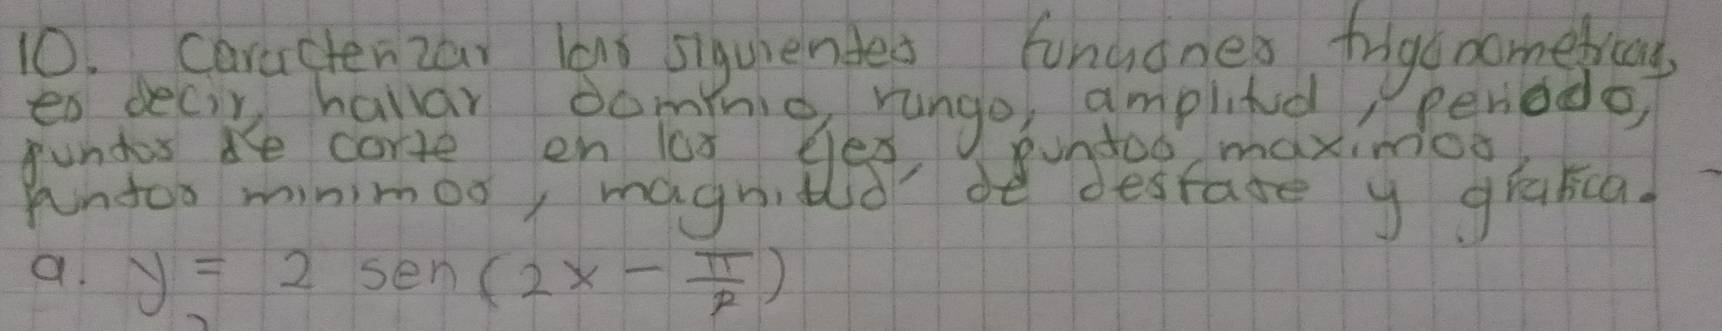 10. Caracterizar las siguientes funciones trigonometricas,
es decir, hallar dominio, rango, amplitud, periodo,
puntos de corte en los ejes, puntos maximos,
puntos minimos, magnitud de desfase y grafica.
a. y = 2 sen (2x - π/2)